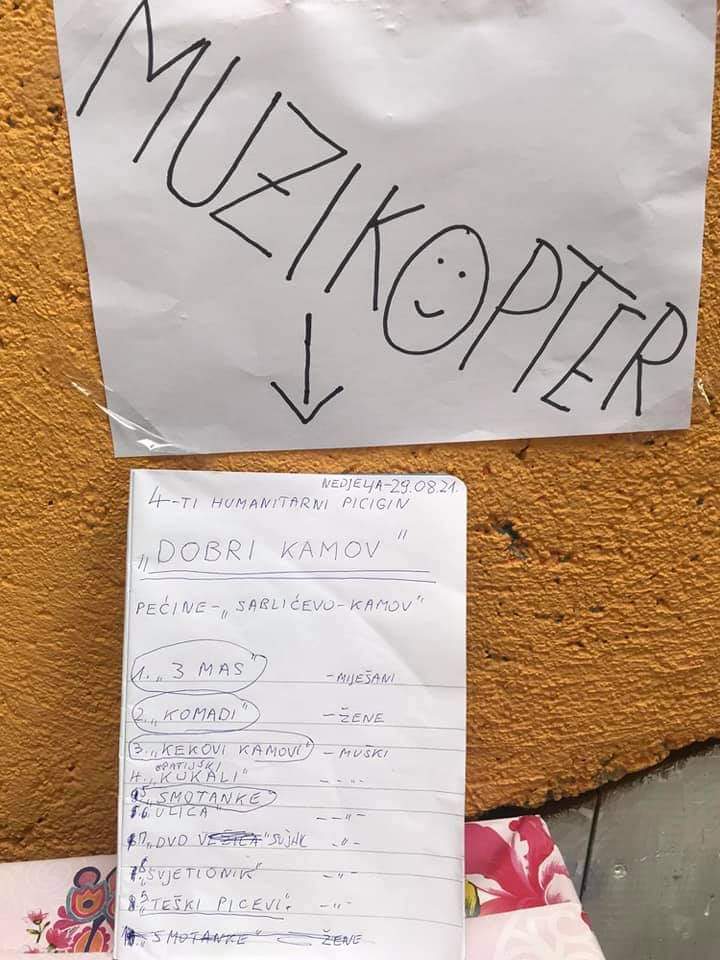 MUZIKOPTER
NEDJELJA-29.08.21.
4-TI HUMANITARNI PICIGIN
„DOBRI KAMOV"
PEĆINE-„SABLIĆEVO-KAMOV"
1. „3 MAS" -MIJEŠANI
2. „KOMADI" -ŽENE
3. „KEKOVI KAMOVI" - MUŠKI
OPATIJSKI
4. „KUKALI" - -"-
5 „SMOTANKE"
6. „ULICA" - -"-
7. „DVD -"-
8. „SVJETIONIK" -"-
9 „TEŠKI PICEVI". -"-
SMOTANKE" ŽENE